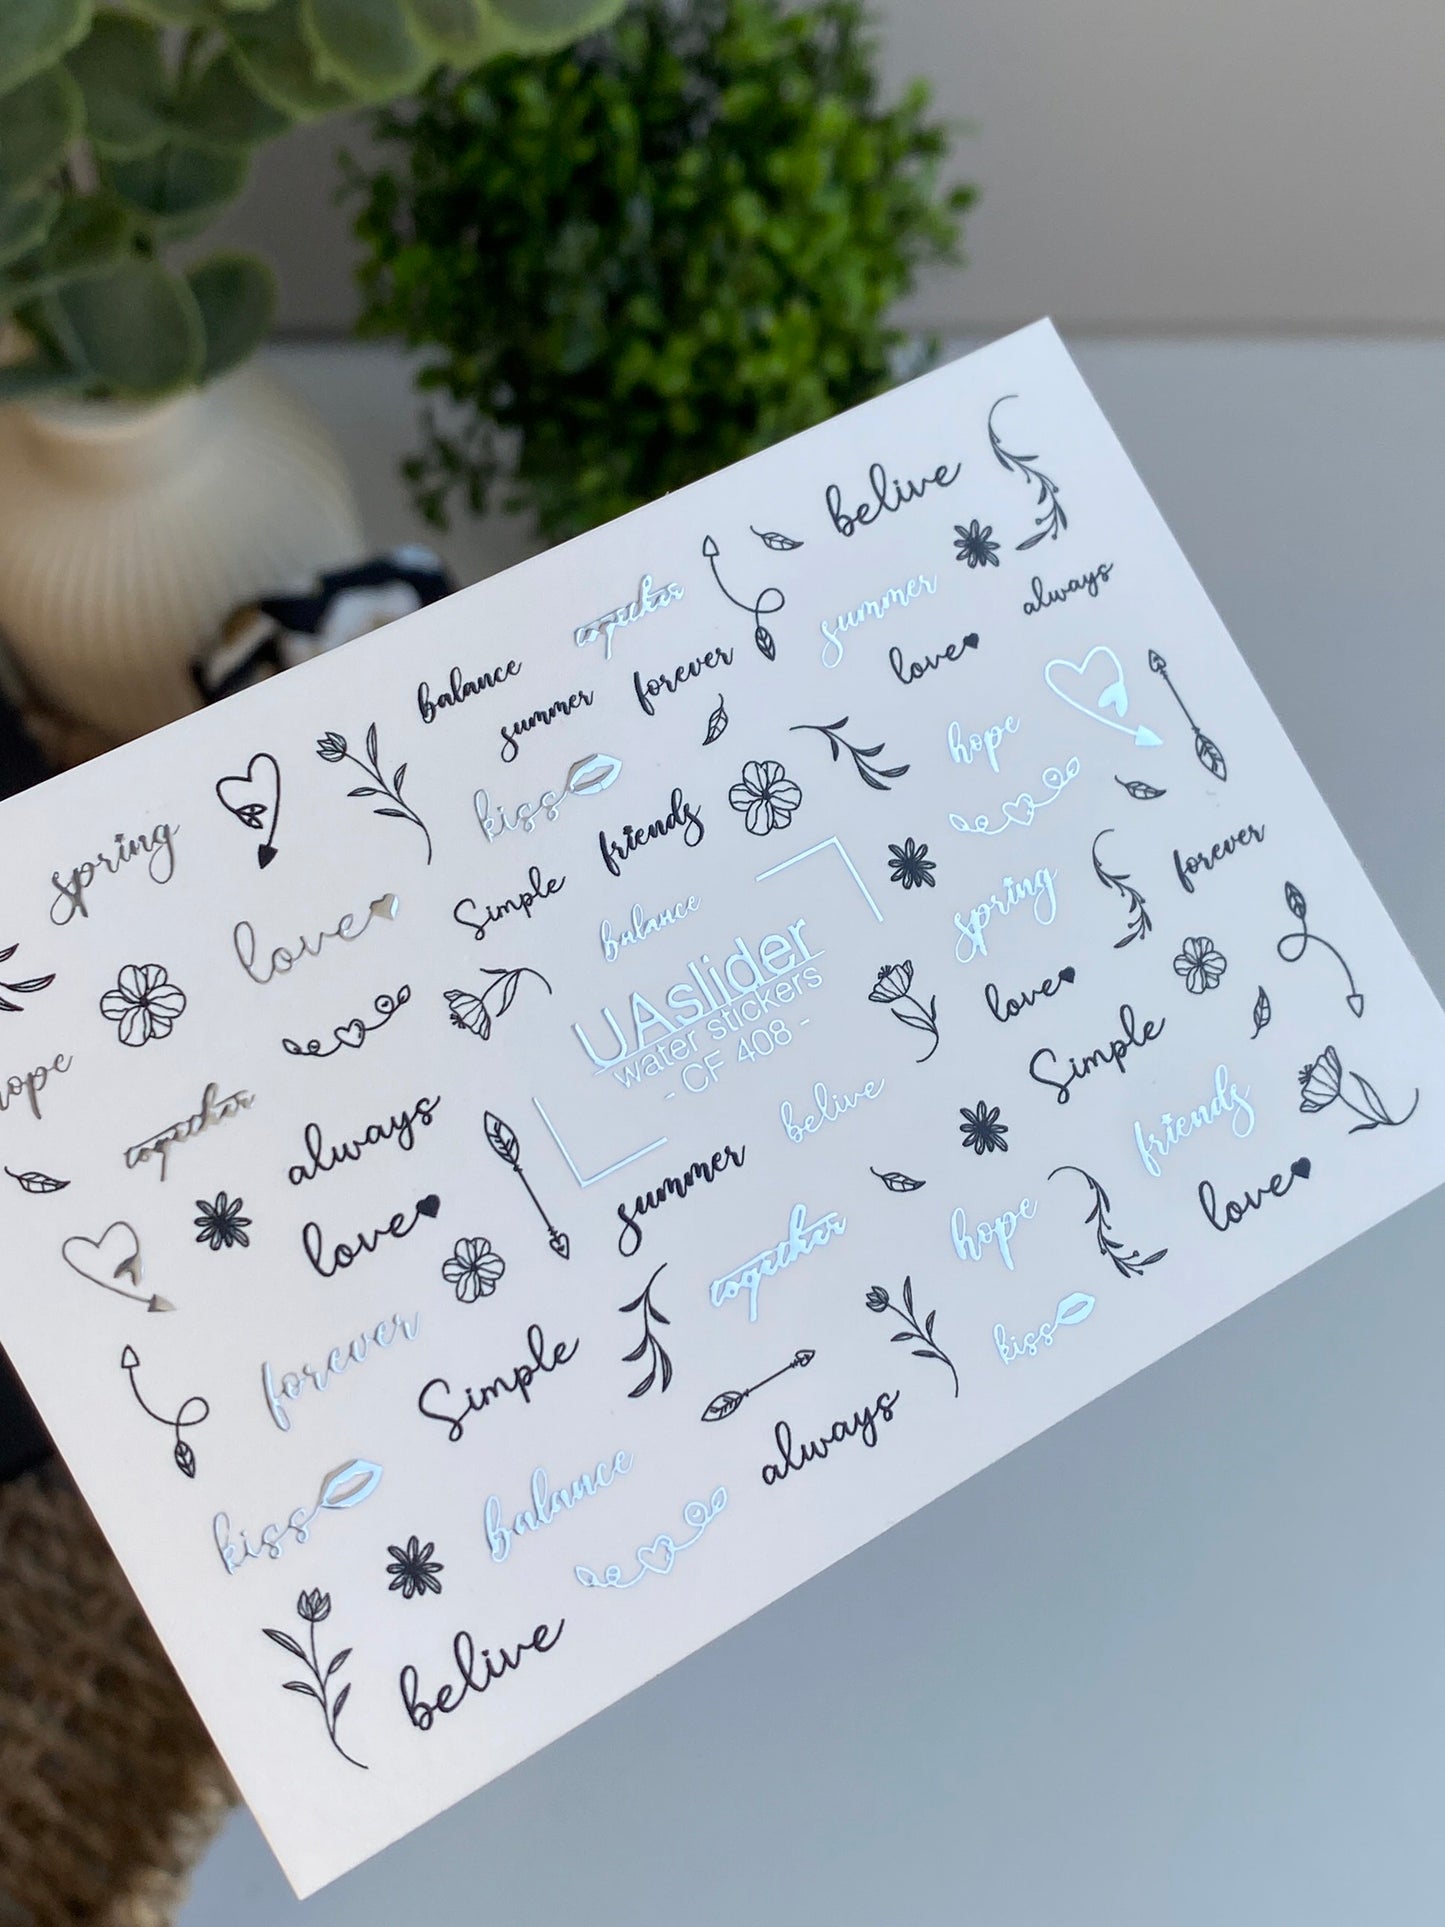 belive
together
summer
always
balance
forever
love
summer
hope
kiss
spring
friends
forever
love
Simple
balance
spring
UAslider
water stickers
- CF 408 -
love
Simple
together
always
belive
friends
summer
love
love
together
hope
forever
kiss
Simple
always
balance
kiss
belive